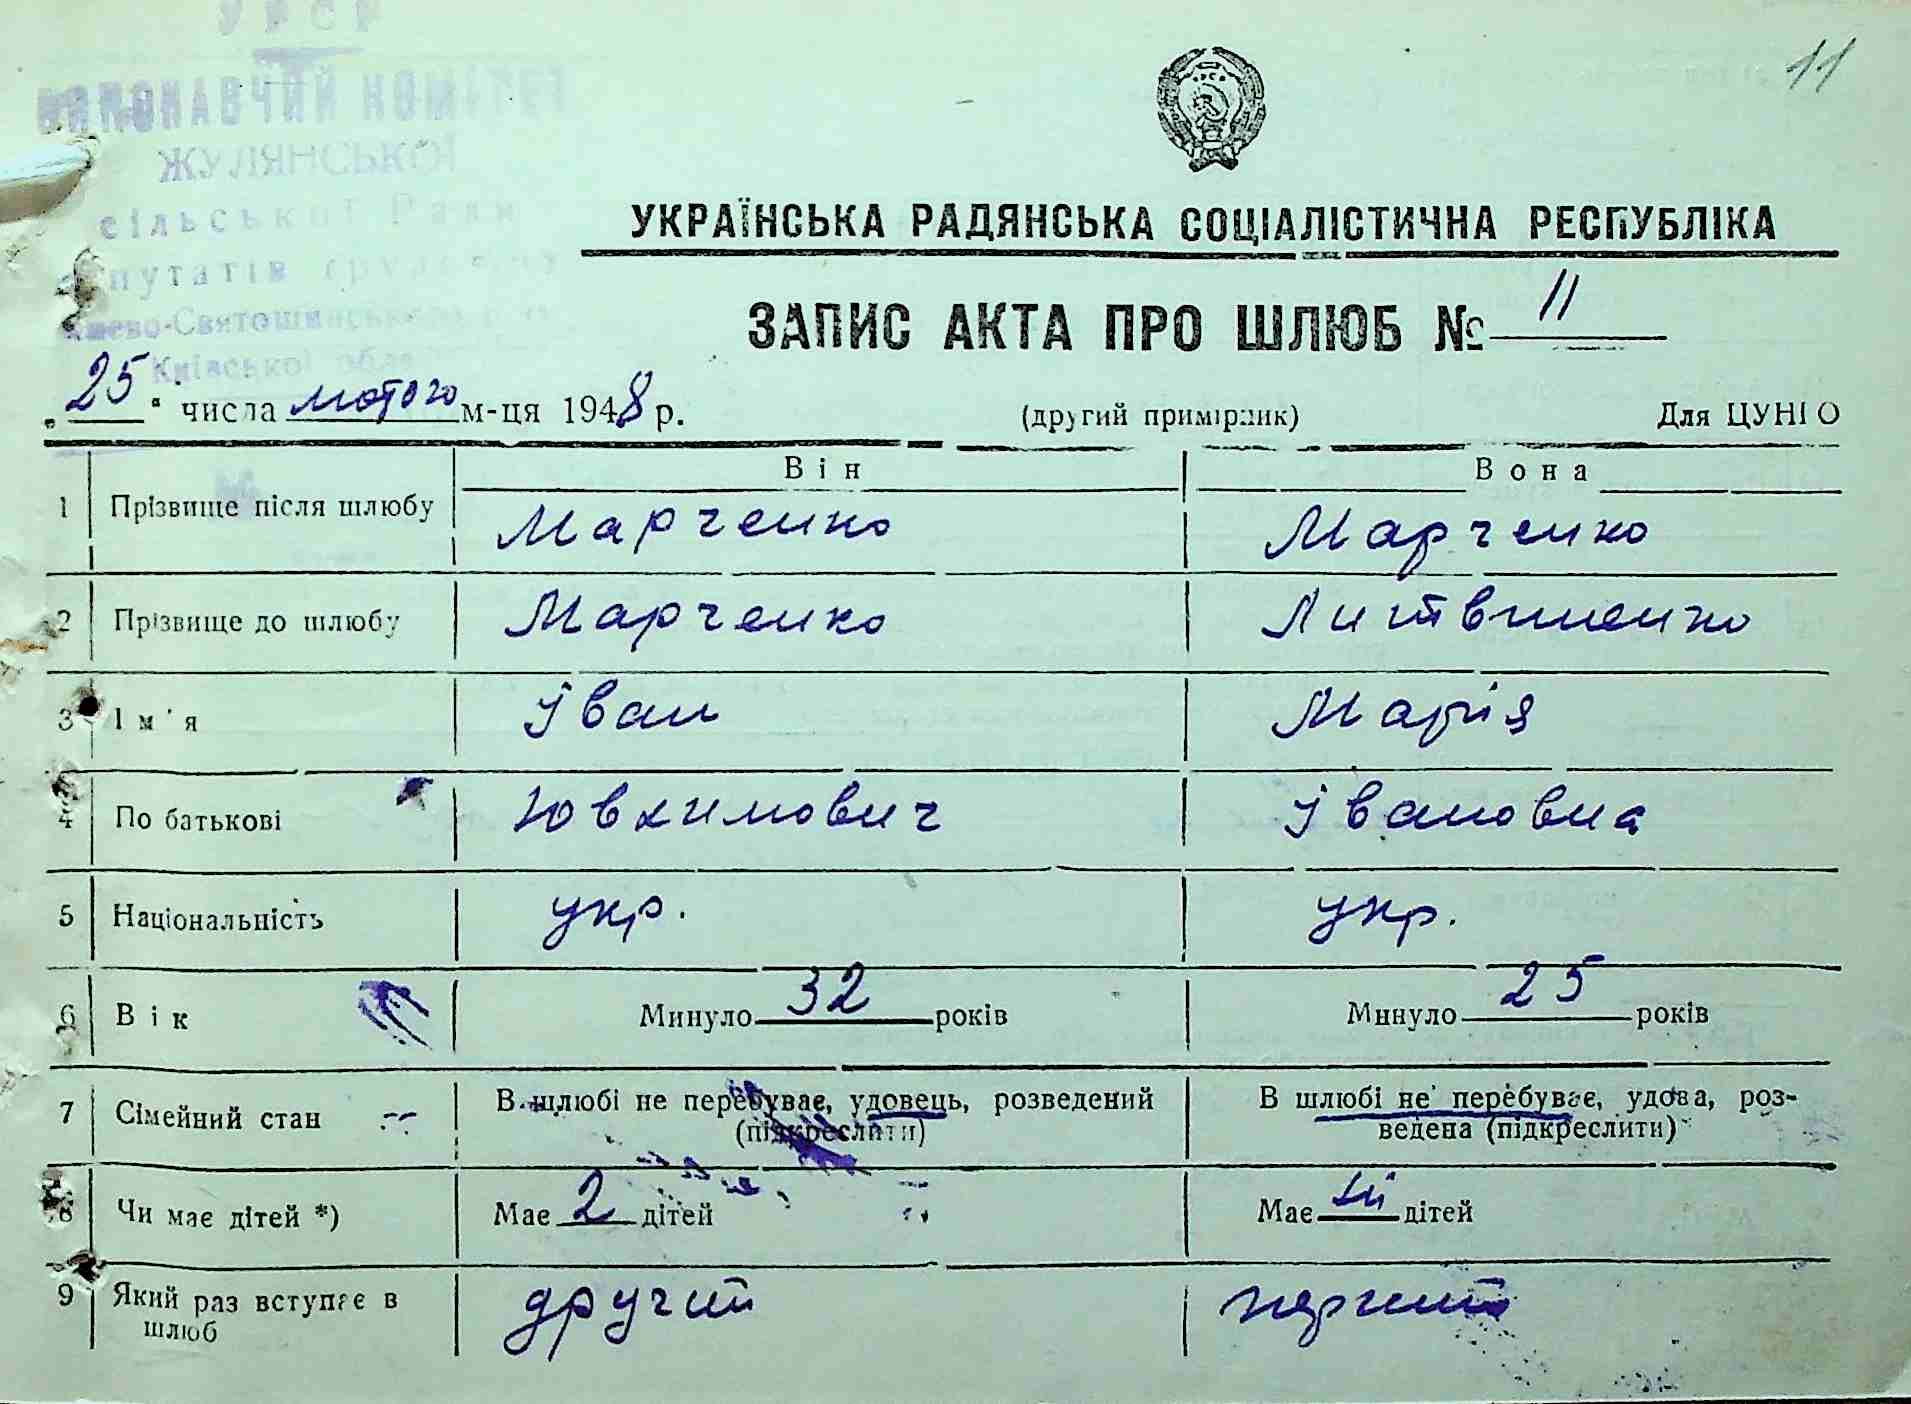 УРСР
ВИКОНАВЧИЙ КОМІТЕТ
ЖУЛЯНСЬКОЇ
сільської Ради
депутатів трудящих
Києво-Святошинського
Київської обл
11
УКРАЇНСЬКА РАДЯНСЬКА СОЦІАЛІСТИЧНА РЕСПУБЛІКА
ЗАПИС АКТА ПРО ШЛЮБ № 11
„25“ числа лютого м-ця 1948 р. (другий примірник) Для ЦУНГО
Він Вона
1 Прізвище після шлюбу Марченко Марченко
2 Прізвище до шлюбу Марченко Литвиненко
3 Ім'я Іван Марія
4 По батьковіЮвхимович Івановна
5 Національність укр. укр.
6 Вік Минуло 32 років Минуло 25 років
7 Сімейний стан В шлюбі не перебуває, удовець, розведений В шлюбі не перебуває, удова, роз-
(підкреслити) ведена (підкреслити)
8 Чи має дітей *) Має 2 дітей Має дітей
9 Який раз вступає в другий перший
шлюб